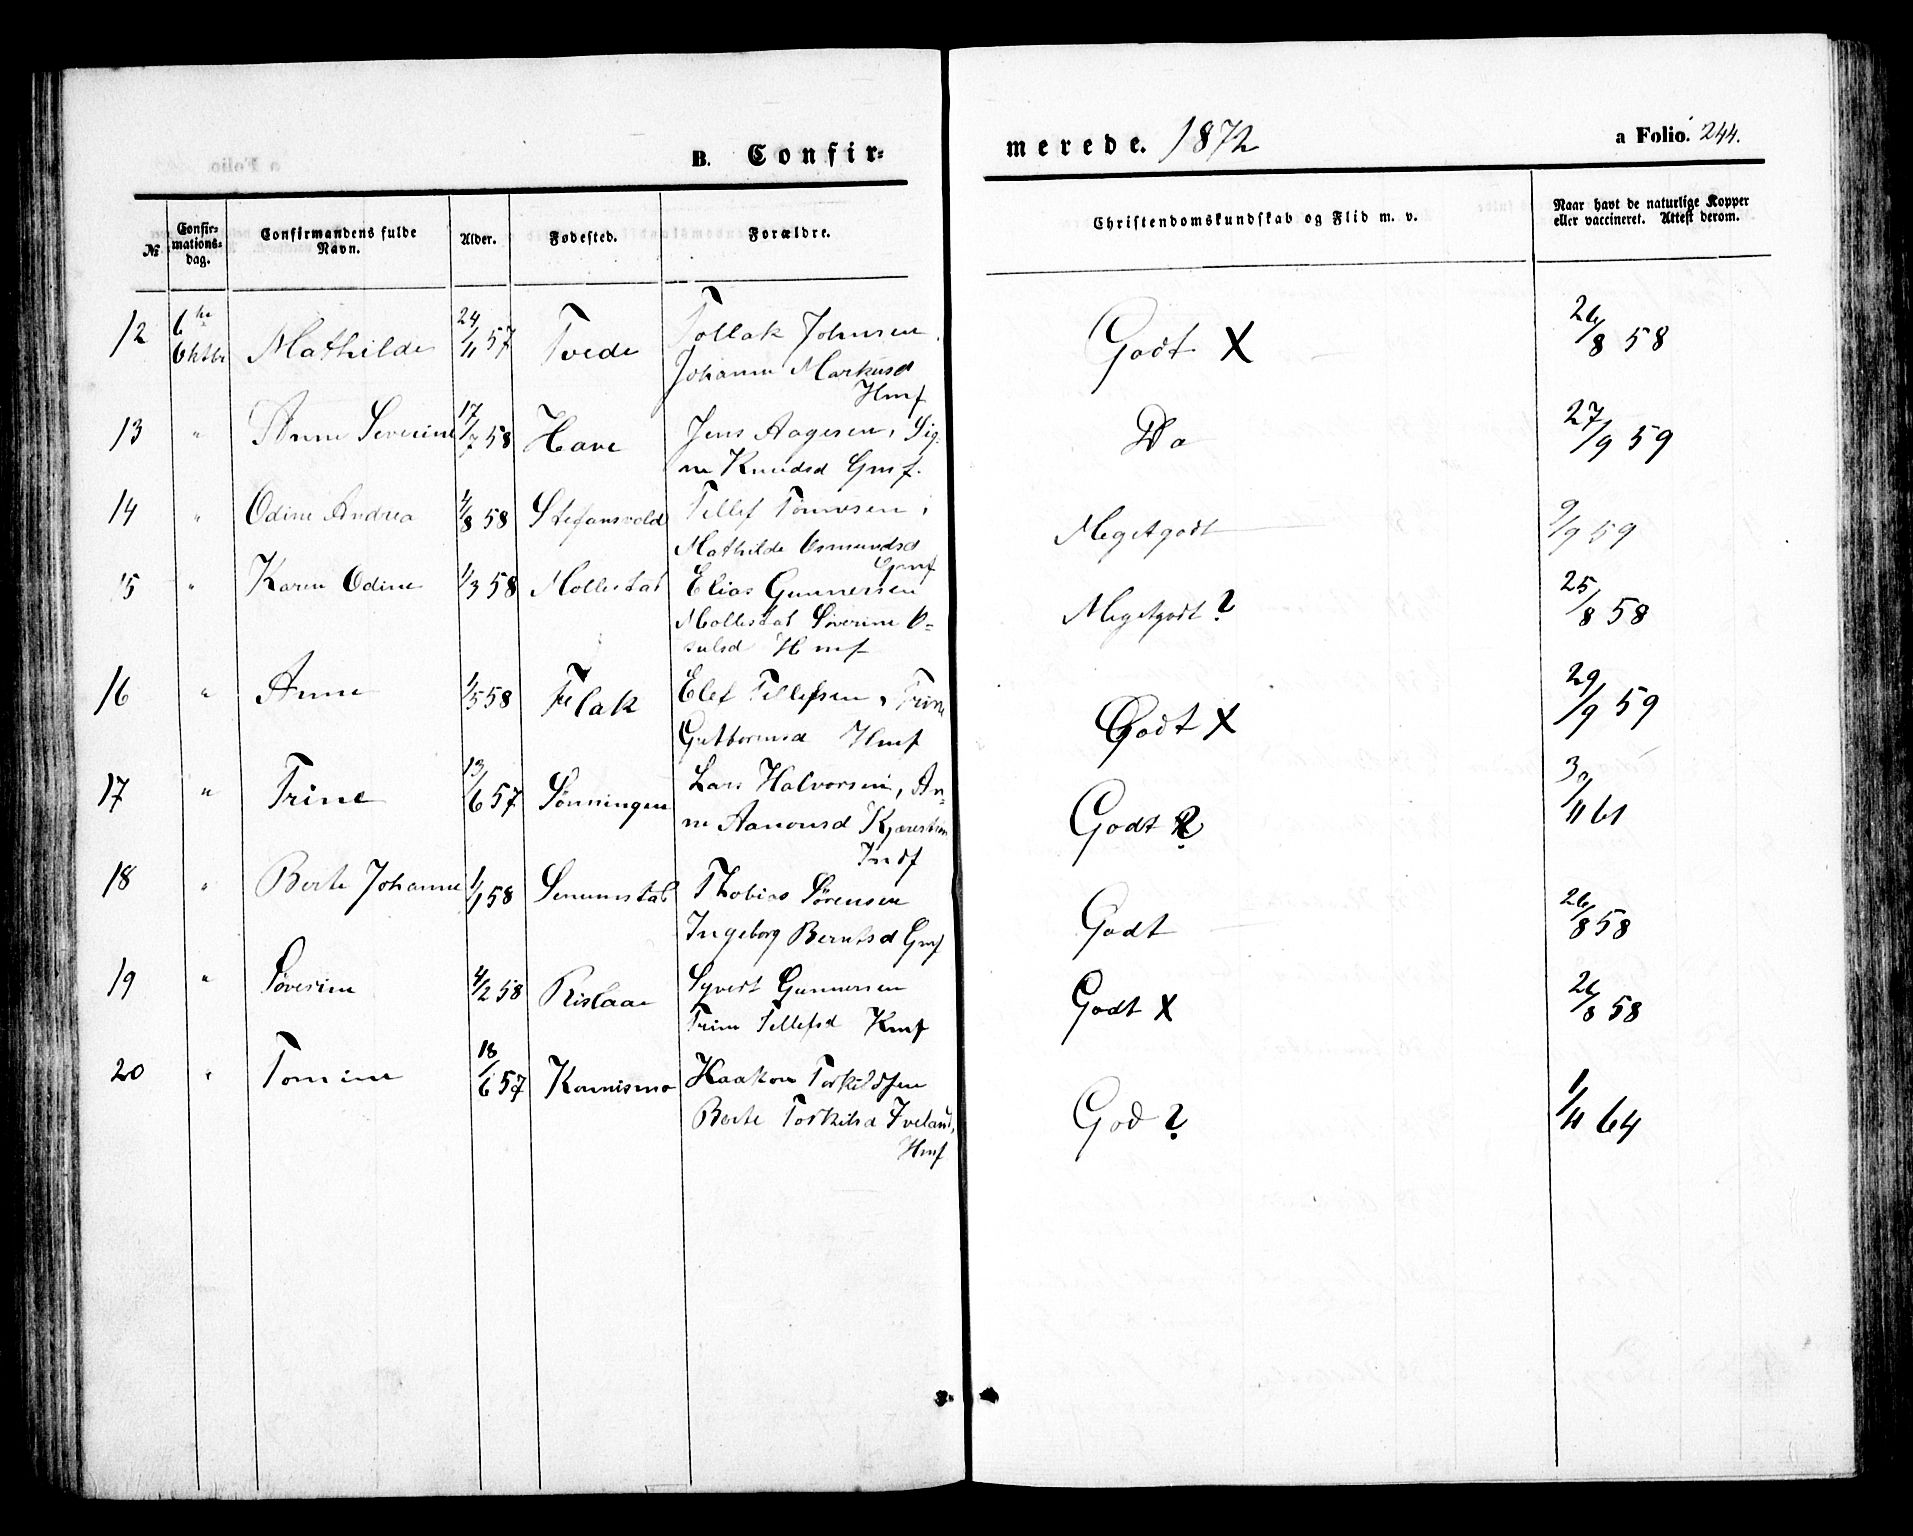 B. Confir-
merede. 1872
a Folio. 244.
№
Confir-
mations-
dag.
Confirmandens fulde
Navn.
Alder.
Fødested.
Forældre.
Christendomskundskab og Flid m. v.
Naar havt de naturlige Kopper
eller vaccineret. Attest derom.
12 6te Mathilde 24/11 57 Tvede Tollak Johnsen, Godt X 26/8 58
Johanne Markusd
Hmf
13 " Anne Severine 17/7 58 Have Jens Aagesen, Sig- Do 27/9 59
ne Knudsd Gmf.
14 " Odine Andrea 1/8 58 Stefansvold Tellef Tønnesen, Megetgodt 9/9 59
Mathilde Osmundsd
Gmf
15 " Karen Odine 1/3 58 Mollestad Elias Gunnersen Megetgodt ? 25/8 58
Mollestad Söverine O-
sulsd Hmf
16 " Anne 1/5 58 Flak Elef Tellefsen, Trine Godt X 29/9 59
Gutbormsd Hmf
17 " Trine 13/6 57 Sønningen Lars Halvorsen, An- Godt ? 30/11 61
ne Aanonsd
Indf
18 " Berte Johanne 1/1 58 Senumstad Thobias Sørensen Godt 26/8 58
Ingeborg Berntsd Gmf
19 " Söverine 4/2 58 Rislaae Syvert Gunnersen Godt X 26/8 58
Trine Tellefsd Kmf
20 " Tomine 18/6 57 Konnismo Haakon Torkildsen God ? 1/11 64
Berte Torkilsd Iveland,
Hmf